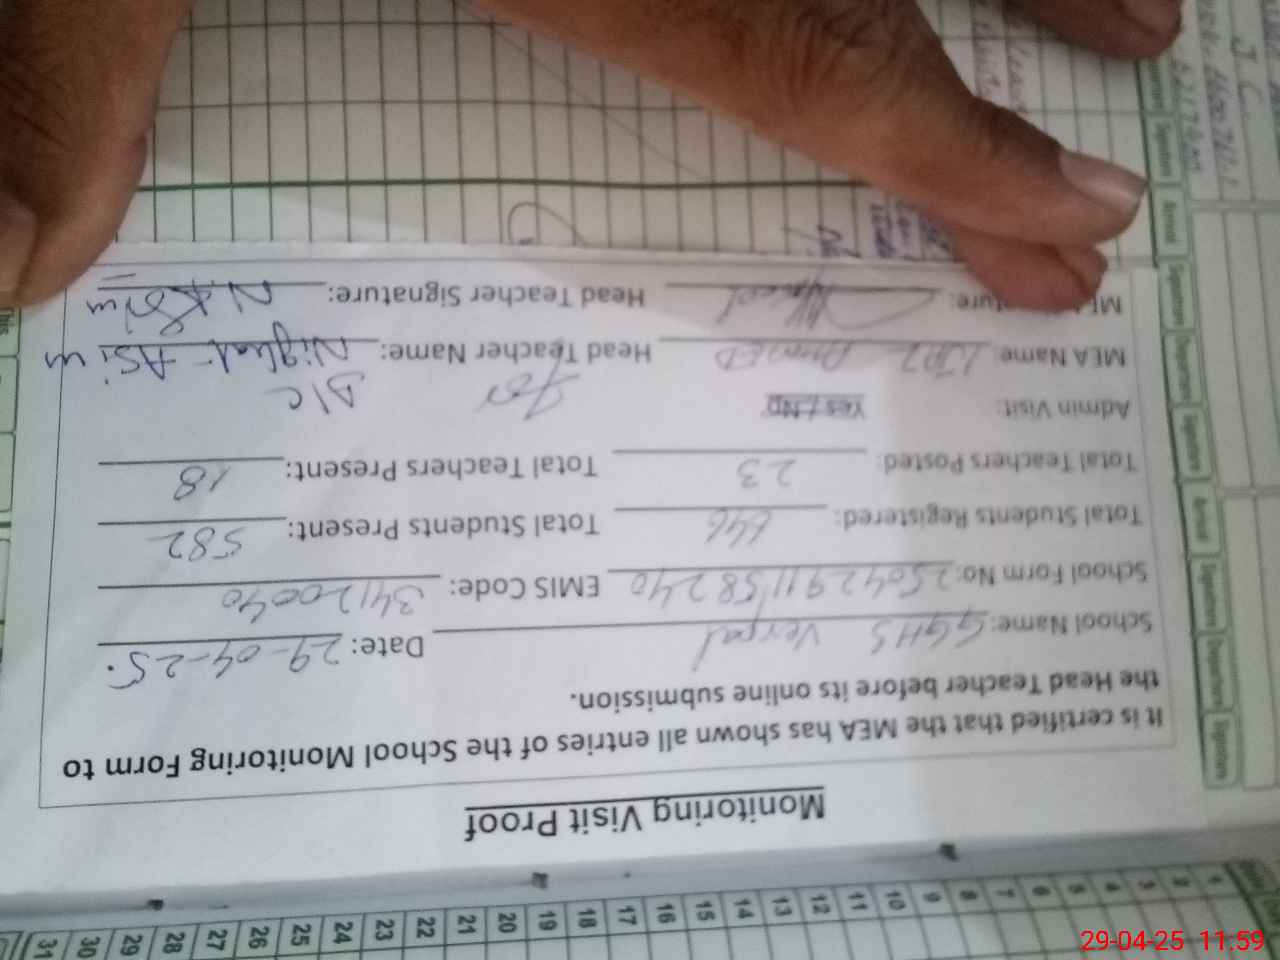 Monitoring Visit Proof
It is certified that the MEA has shown all entries of the School Monitoring Form to
the Head Teacher before its online submission.
School Name: GGHS Verpal Date: 29-04-25.
School Form No: 2504291158240 EMIS Code: 34120040
Total Students Registered: 646 Total Students Present: 582
Total Teachers Posted: 23 Total Teachers Present: 18
Admin Visit: Yes / No for D/C
MEA Name: Head Teacher Name: Nighat Asim
Head Teacher Signature: N. Asim
1 2 3 4 5 6 7 8 9 10 11 12 13 14 15 16 17 18 19 20 21 22 23 24 25 26 27 28 29 30 31
Signature Departure Signature Arrival Signature Departure Signature Arrival Signature
29-04-25 11:59